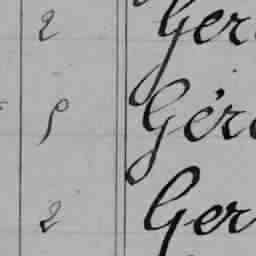 2 Ger
5 Gér
2 Ger